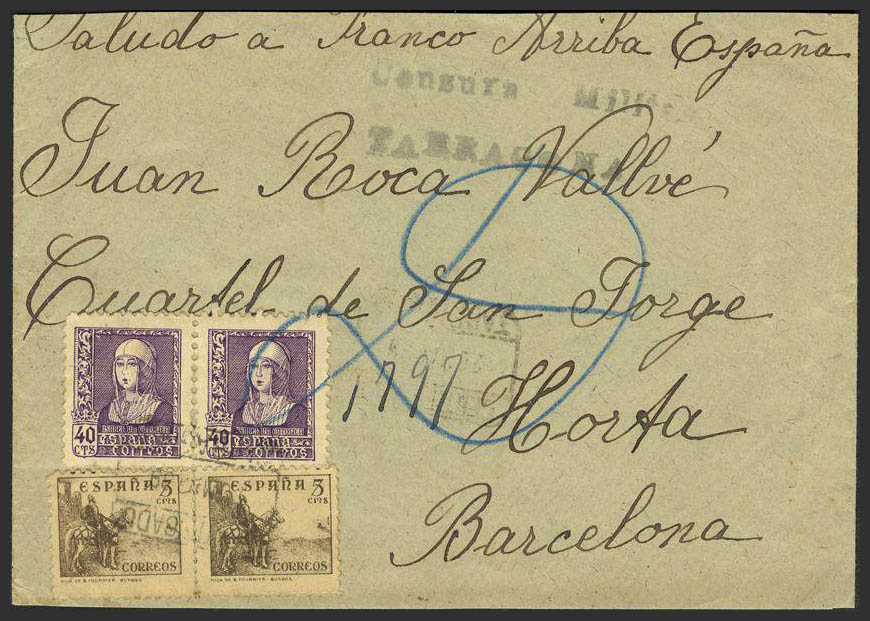 Saludo a Franco Arriba España
Censura
TARRAGONA
Juan Roca Vallvé
Cuartel de San Jorge
1797
Horta
Barcelona
40 CTS ISABEL LA CATOLICA ESPAÑA CORREOS
40 CTS ISABEL LA CATOLICA ESPAÑA CORREOS
ESPAÑA 5 CTS CORREOS
HIJA DE B. FOURNIER - BURGOS
ESPAÑA 5 CTS CORREOS
HIJA DE B. FOURNIER - BURGOS